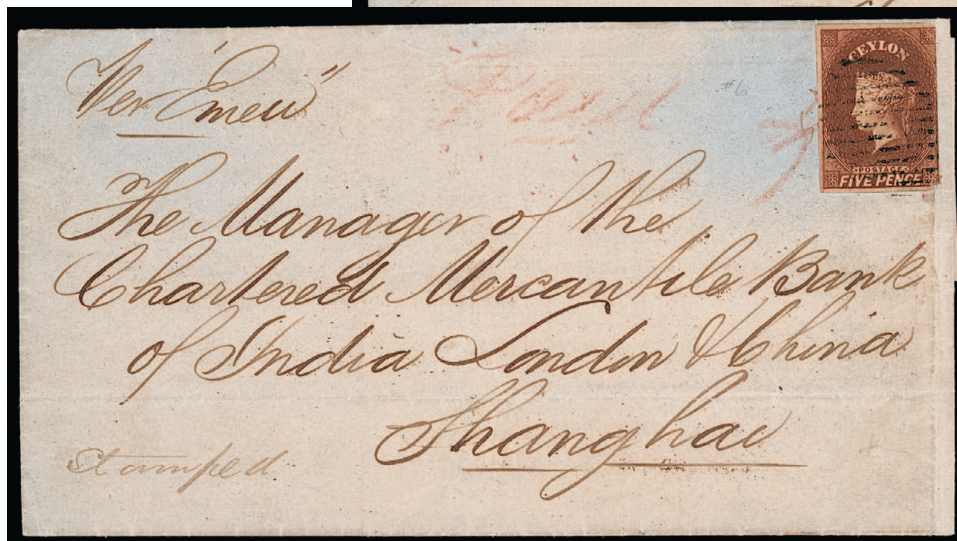 Per "Emeu"
#6
Paid
CEYLON
POSTAGE
FIVE PENCE
The Manager of the
Chartered Mercantile Bank
of India London & China
Shanghai
Stamped